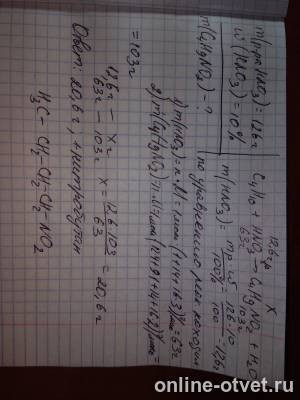 m(р-ра HNO₃) = 126г
ω(HNO₃) = 10%
m(C₄H₉NO₂) = ?
12,6г x
C₄H₁₀ + HNO₃ → C₄H₉NO₂ + H₂O
63г 103г
m(HNO₃) = mр·ω/100% = 126·10/100 = 12,6г
по уравнению реакции
1) m(HNO₃) = n·M = 1моль·(1+14+16·3)г/моль = 63г
2) m(C₄H₉NO₂) = n·M = 1моль·(12·4+9+14+16·2)г/моль =
= 103г
12,6г – xг
63г – 103г x = 12,6·103/63 = 20,6г
Ответ: 20,6г, 1-нитробутан
H₃C – CH₂ – CH₂ – CH₂ – NO₂
online-otvet.ru